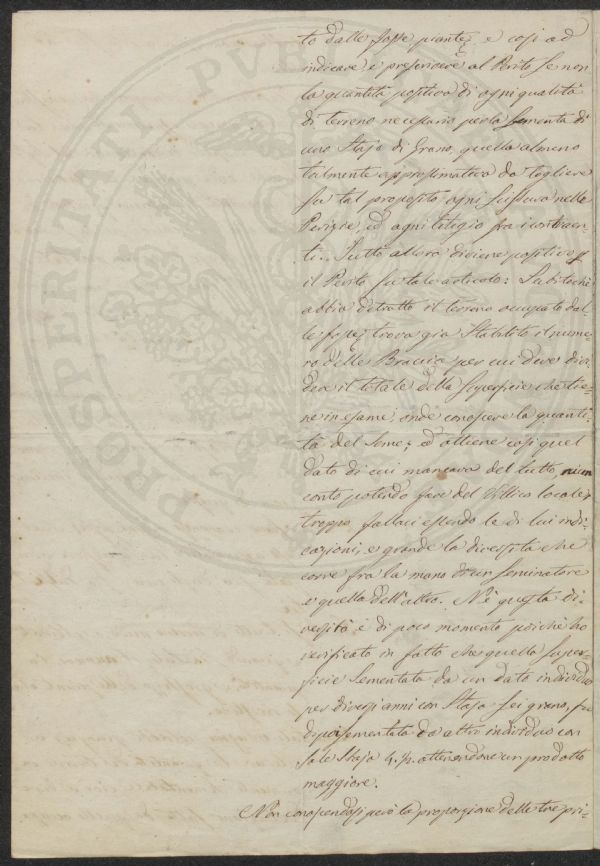 to dalle fosse piante, e così ad
indicare e prescrivere al Perito se non
la quantità positiva di ogni qualità
di terreno necessario per la sementa di
uno Stajo di Grano, quella almeno
talmente approssimativa da togliere
su tal proposito ogni scissura nelle
Perizie, ed ogni litigio fra i contraen-
ti. Tutto allora diviene positivo p
il Perito su tale articolo: Subitochè
abbia detratto il terreno occupato dal-
le fosse, trova già stabilito il nume-
ro delle Braccia per cui deve divi-
dere il totale della superficie che tie-
ne in esame, onde conoscere la quanti-
tà del seme; ed ottiene così quel
dato di cui mancava del tutto, niun
conto potendo fare del Villico locale,
troppo fallaci essendo le di lui indi-
cazioni, e grande la diversità che
corre fra la mano di un seminatore
e quella dell'altro. Nè questa di-
versità è di poco momento poichè ho
verificato in fatto che quella super-
ficie sementata da un dato individuo
per diversi anni con Staja sei grano, fu
dipoi sementata da altro individuo con
sole Staja 4. ½. ottenendone un prodotto
maggiore.
Non conoscendosi però la proporzione delle tre pri-
PROSPERITATI PUBL